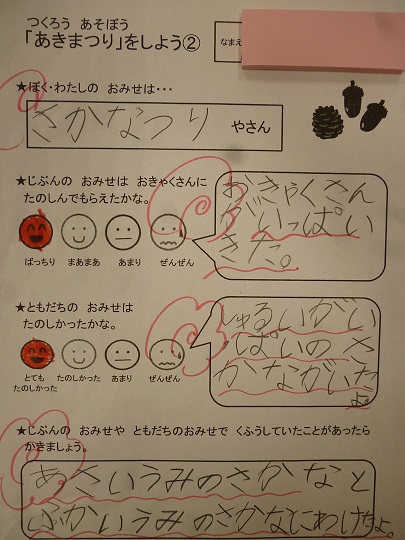 つくろう あそぼう
「あきまつり」をしよう②
なまえ
★ぼく・わたしの おみせは・・・
さかなつり やさん
★じぶんの おみせは おきゃくさんに
たのしんでもらえたかな。
ばっちり まあまあ あまり ぜんぜん
おきゃくさん
がいっぱい
きた。
★ともだちの おみせは
たのしかったかな。
とても
たのしかった たのしかった あまり ぜんぜん
しゅるいがい
ぱいのさ
かながいた
よ。
★じぶんの おみせや ともだちのおみせで くふうしていたことがあったら
かきましょう。
あさいうみのさかなと
ふかいうみのさかなにわけたよ。